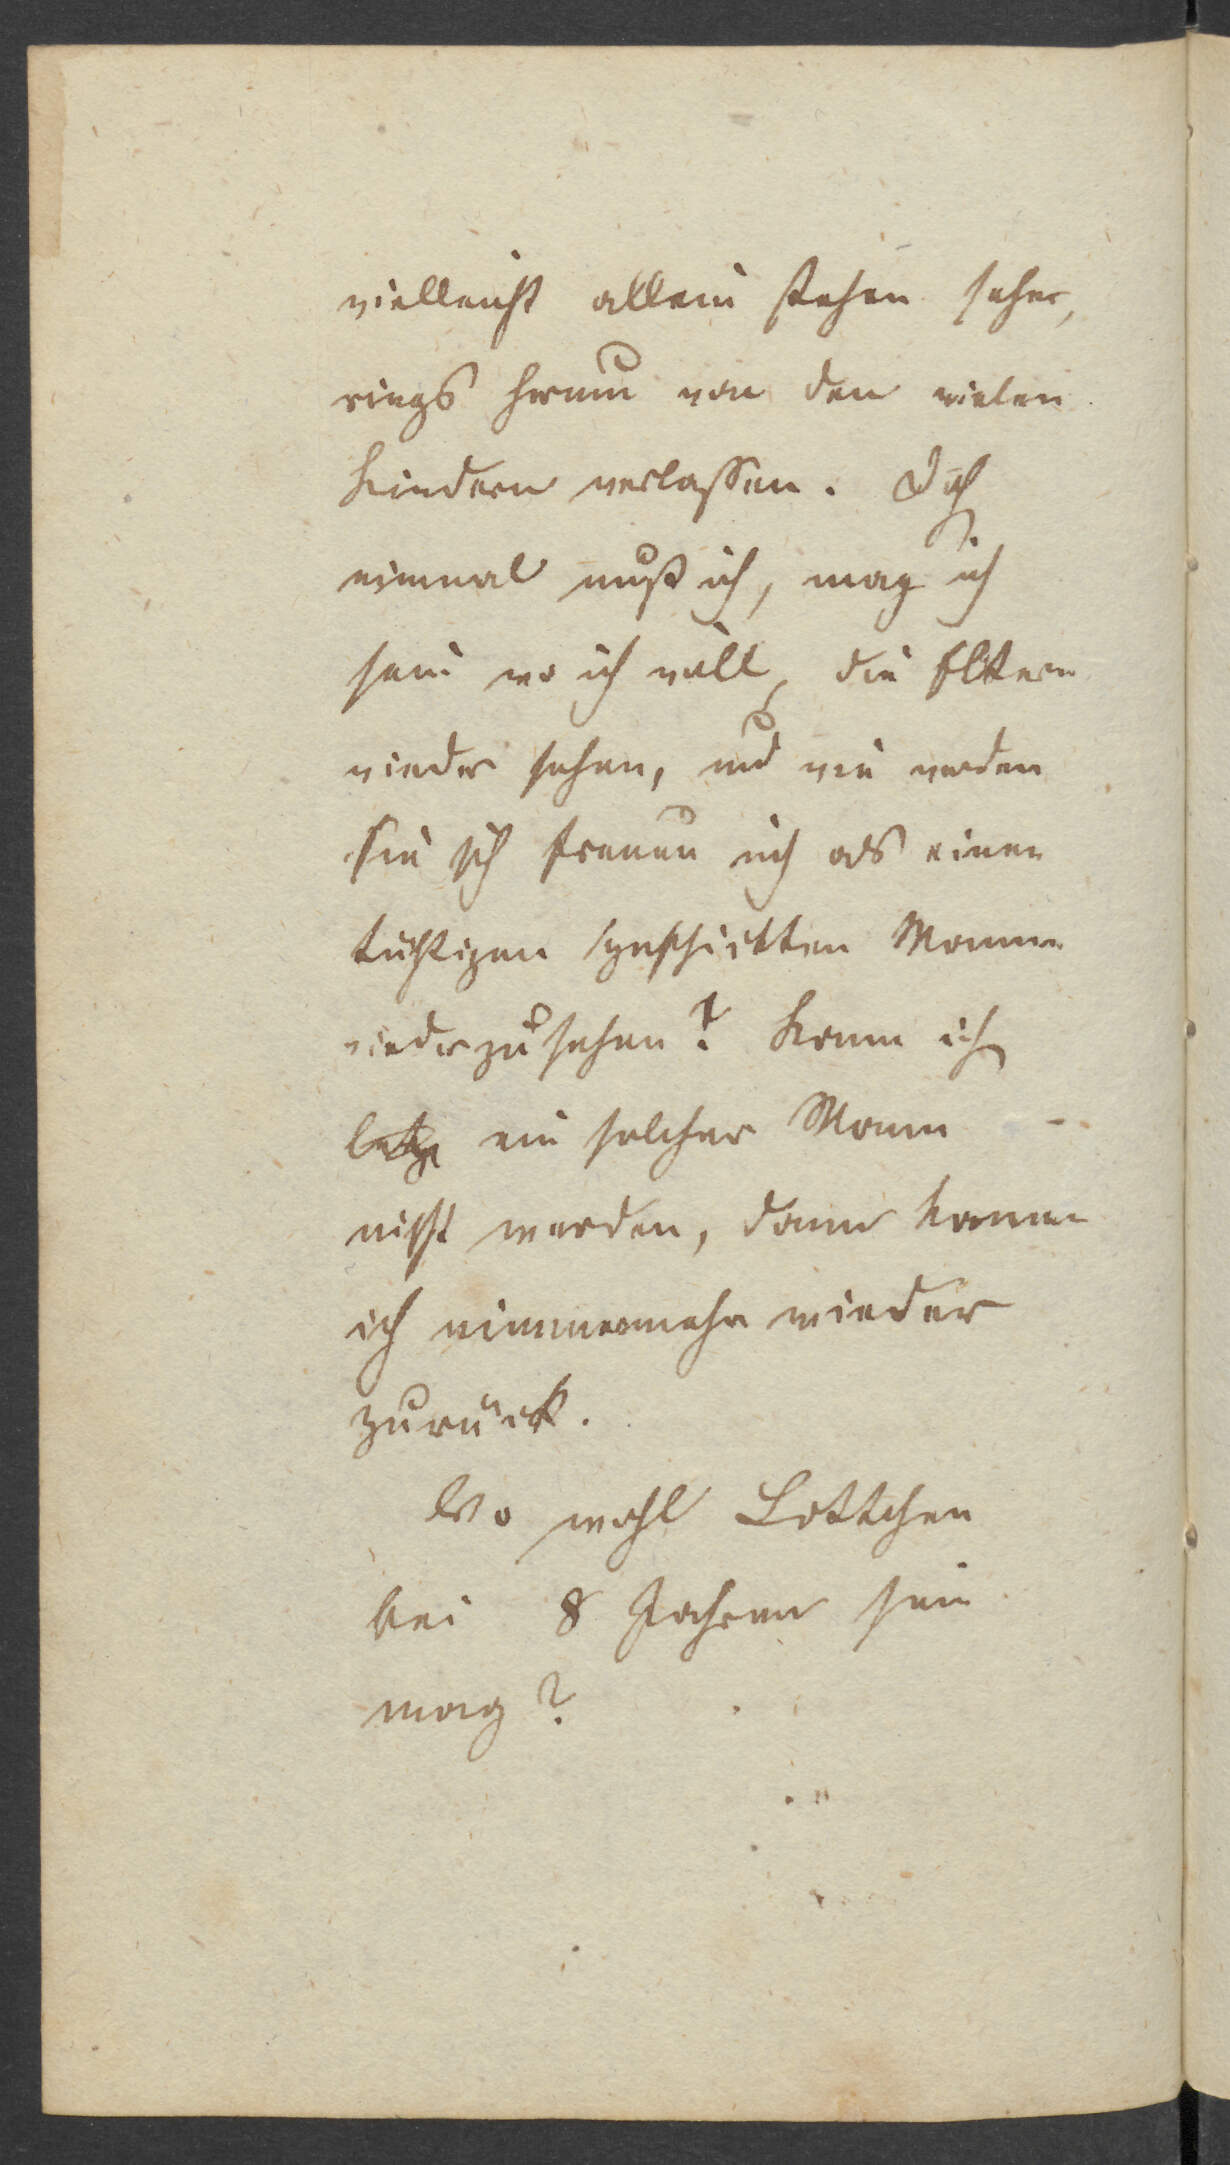 vielleicht allein stehen sehen,
rings herum von den vielen
Kindern verlassen. Doch
einmal muß ich, mag ich
sein wo ich will, die Eltern
wieder sehen, und wie werden
sie sich freuen mich als einen
tüchtigen geschickten Mann
wiederzusehen? Kann ich
ein solcher Mann
nicht werden, dann komme
ich nimmermehr wieder
zurück.
Wo wohl Lottchen
bei 8 Jahren sein
mag?